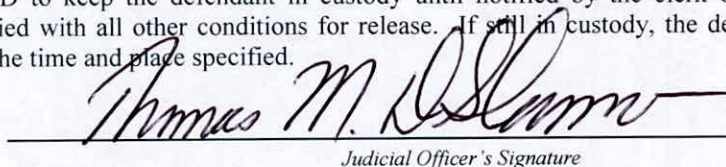 D to keep the defendant in custody until notified by the clerk
ied with all other conditions for release. If still in custody, the de
he time and place specified.
Thomas M. D
Judicial Officer's Signature